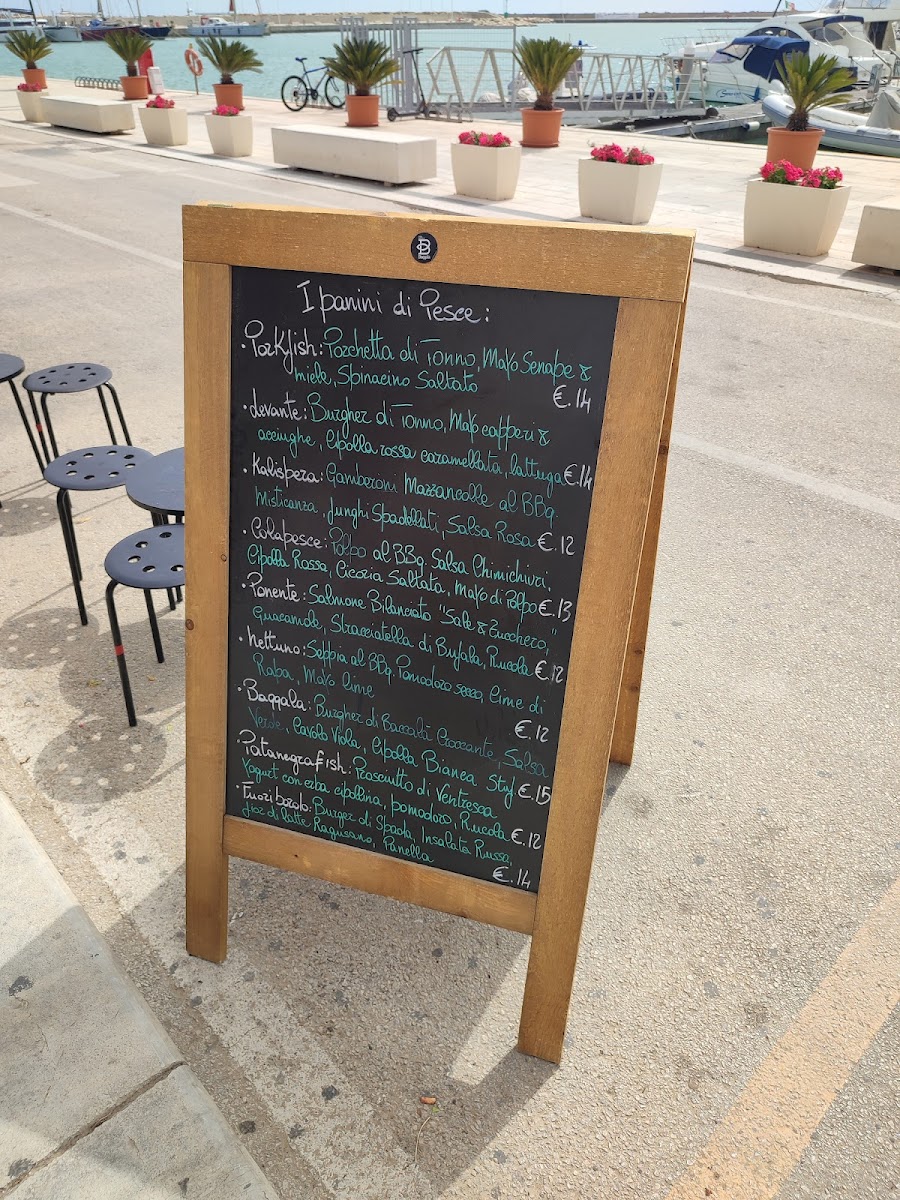 B
I panini di Pesce:
• Porkfish: Porchetta di Tonno, Mayo Senape &
miele, Spinacino Saltato
€. 14
• Levante: Burgher di Tonno, Mayo capperi &
acciughe, Cipolla rossa caramellata, lattuga €. 14
• Kalispera: Gamberoni Mazzancolle al BBq.
Misticanza, funghi Spadellati, Salsa Rosa €. 12
• Colapesce: Polpo al BBq. Salsa Chimichurri,
Cipolla Rossa, Cicoria Saltata, Mayo di Polpo €. 13
• Ponente: Salmone Bilanciato "Sale & Zucchero,"
Guacamole, Stracciatella di Bufala, Rucola €. 12
• Nettuno: Seppia al BBq. Pomodoro secco, Cime di
Rapa, Mayo lime
€. 12
• Baqqala: Burgher di Baccalà Croccante, Salsa
Verde, Cavolo Viola, Cipolla Bianca Stuf €. 15
• Patanegrafish: Prosciutto di Ventresca
Yogurt con erba cipollina, pomodoro, Rucola €. 12
• Fuori bordo: Burger di Spada, Insalata Russa,
fior di latte Ragusano, Panella
€. 14